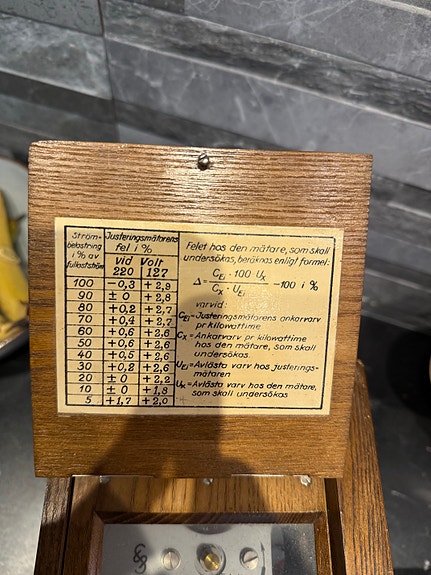 Ström-
belastning
i % av
fullastström
Justeringsmätarens
fel i %
vid Volt
220 127
100 −0,3 +2,9
90 ± 0 +2,8
80 +0,2 +2,7
70 +0,4 +2,7
60 +0,6 +2,6
50 +0,6 +2,6
40 +0,5 +2,6
30 +0,2 +2,6
20 ± 0 +2,2
10 ± 0 +1,8
5 +1,7 +2,0
Felet hos den mätare, som skall
undersökas, beräknas enligt formel:
Δ = (C_EJ · 100 · U_X) / (C_X · U_EJ) − 100 i %
varvid:
C_EJ = Justeringsmätarens ankarvarv
pr kilowattime
C_X = Ankarvarv pr kilowattime
hos den mätare, som skall
undersökas.
U_EJ = Avlästa varv hos justerings-
mätaren
U_X = Avlästa varv hos den mätare,
som skall undersökas